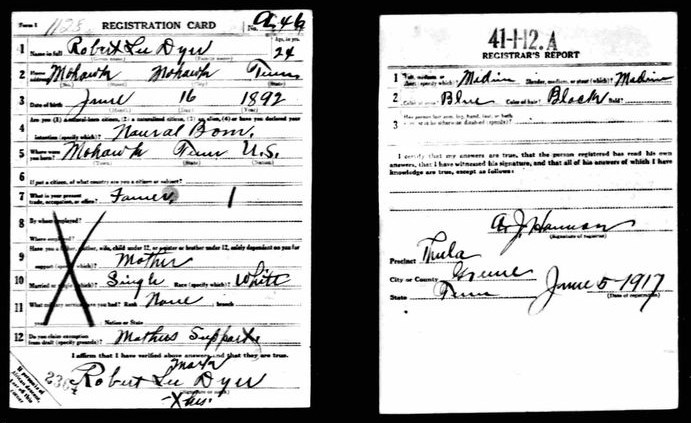 Form 1 1128 REGISTRATION CARD No. A.46
1 Name in full Robert Lee Dyer Age, in yrs. 24
(Given name) (Family name)
2 Home address Mohawk Mohawk Tenn
(No.) (Street) (City) (State)
3 Date of birth June 16 1892
(Month) (Day) (Year)
4 Are you (1) a natural-born citizen, (2) a naturalized citizen, (3) an alien, (4) or have you declared your
intention (specify which)? Naural Born.
5 Where were you born? Mohawk Tenn U.S.
(Town) (State) (Nation)
6 If not a citizen, of what country are you a citizen or subject?
7 What is your present trade, occupation, or office? Famer, 1
8 By whom employed?
Where employed?
9 Have you a father, mother, wife, child under 12, or a sister or brother under 12, solely dependent on you for
support (specify which)? Mother
10 Married or single (which)? Single Race (specify which)? White
11 What military service have you had? Rank None branch
years Nation or State
12 Do you claim exemption from draft (specify grounds)? Mothers Support
I affirm that I have verified above answers and that they are true.
mark
Robert Lee Dyer
(Signature or mark)
X his.
2364
41-1-12. A
REGISTRAR'S REPORT
1 Tall, medium, or short (specify which)? Medium Slender, medium, or stout (which)? Medium
2 Color of eyes? Blue Color of hair? Black Bald?
3 Has person lost arm, leg, hand, foot, or both
or is he otherwise disabled (specify)?
I certify that my answers are true, that the person registered has read his own
answers, that I have witnessed his signature, and that all of his answers of which I have
knowledge are true, except as follows:
J. Harmon
(Signature of registrar)
Precinct Thula
City or County Greene
State Tenn June 5-1917
(Date of registration)